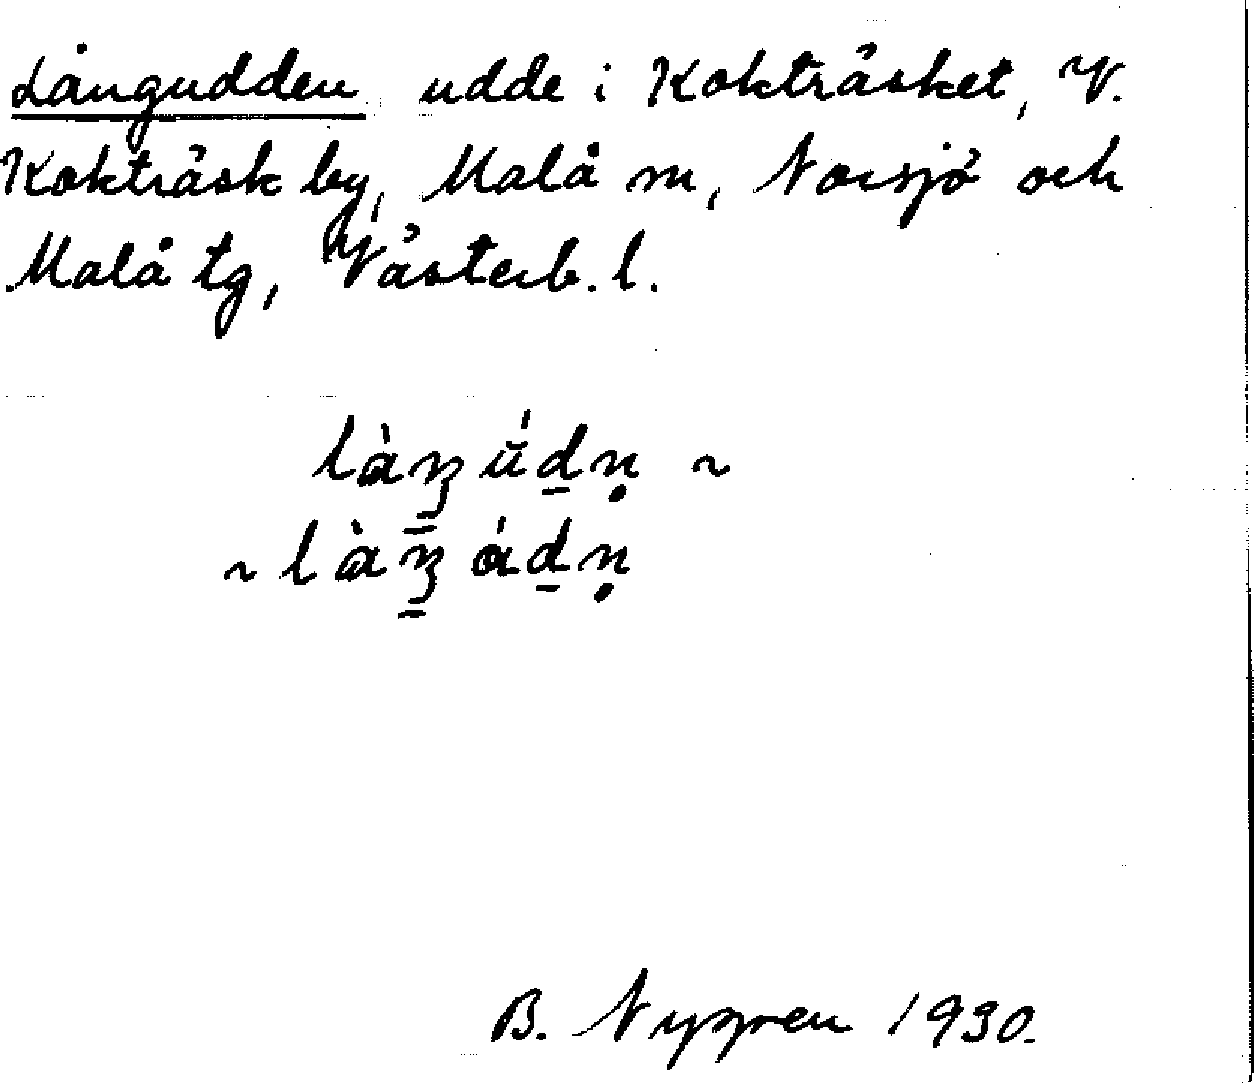 Långudden udde i Kokträsket, V.
Kokträsk by, Malå sn, Norsjö och
Malå tg, Västerb. l.
làŋ̳ ŭ́d̠ṇ ~
~ làŋ̳ ád̠ṇ
B. Nygren 1930.